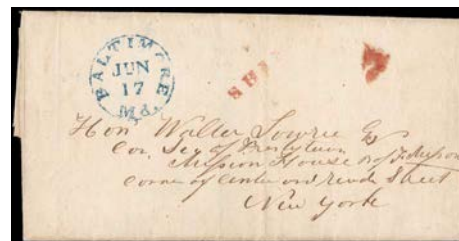 BALTIMORE
JUN
17
Md.
Hon Walter Lowrie Esq
Cor. Sec of Presbyterian
Mission House
corner of Centre and Reade Street
New York